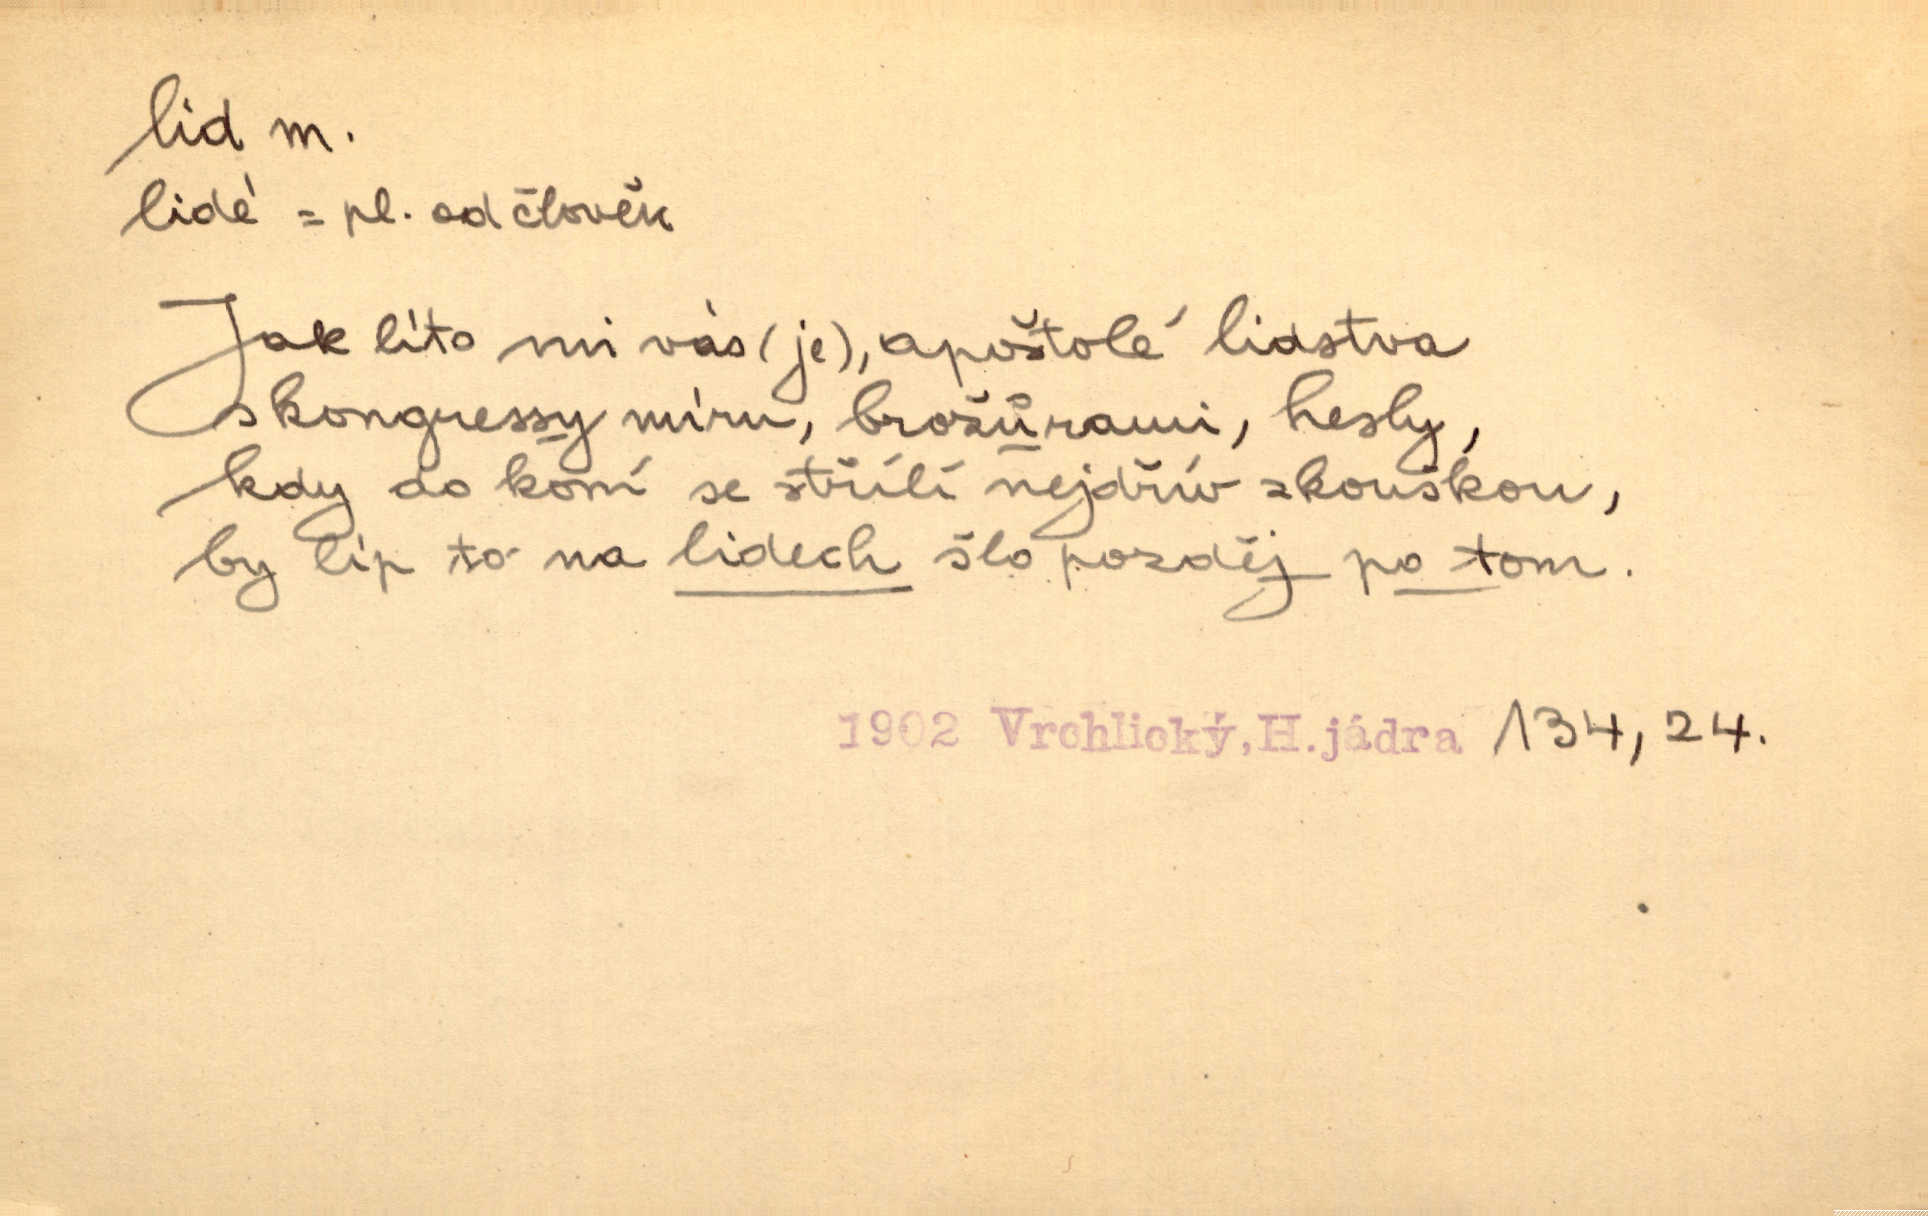 lid m.
lidé = pl. od člověk
Jak líto mi vás (je), apoštolé lidstva
s kongressy míru, brožůrami, hesly,
kdy do koní se střílí nejdřív zkouškou,
by líp to na lidech šlo pozděj po tom.
1902 Vrchlický, H. jádra 134, 24.